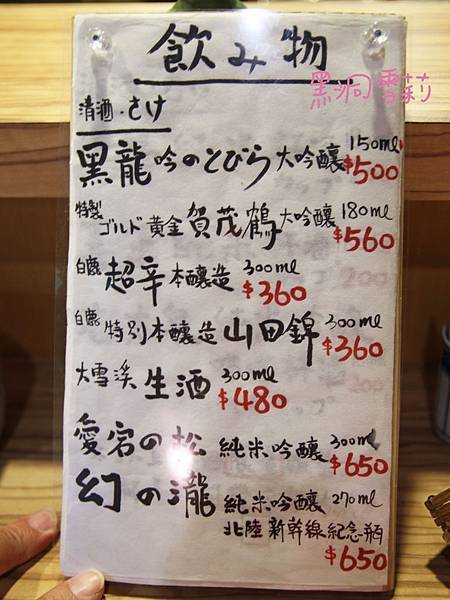 飲み物
黑洞雪莉
清酒・さけ
黑龍 吟のとびら 大吟釀 150ml $500
特製 ゴルド 黄金 賀茂鶴 大吟釀 180ml $560
白鹿 超辛 本釀造 300ml $360
白鹿 特別本釀造 山田錦 300ml $360
大雪渓 生酒 300ml $480
愛宕の松 純米吟釀 300ml $650
幻の瀧 純米吟釀 270ml
北陸新幹線紀念瓶
$650